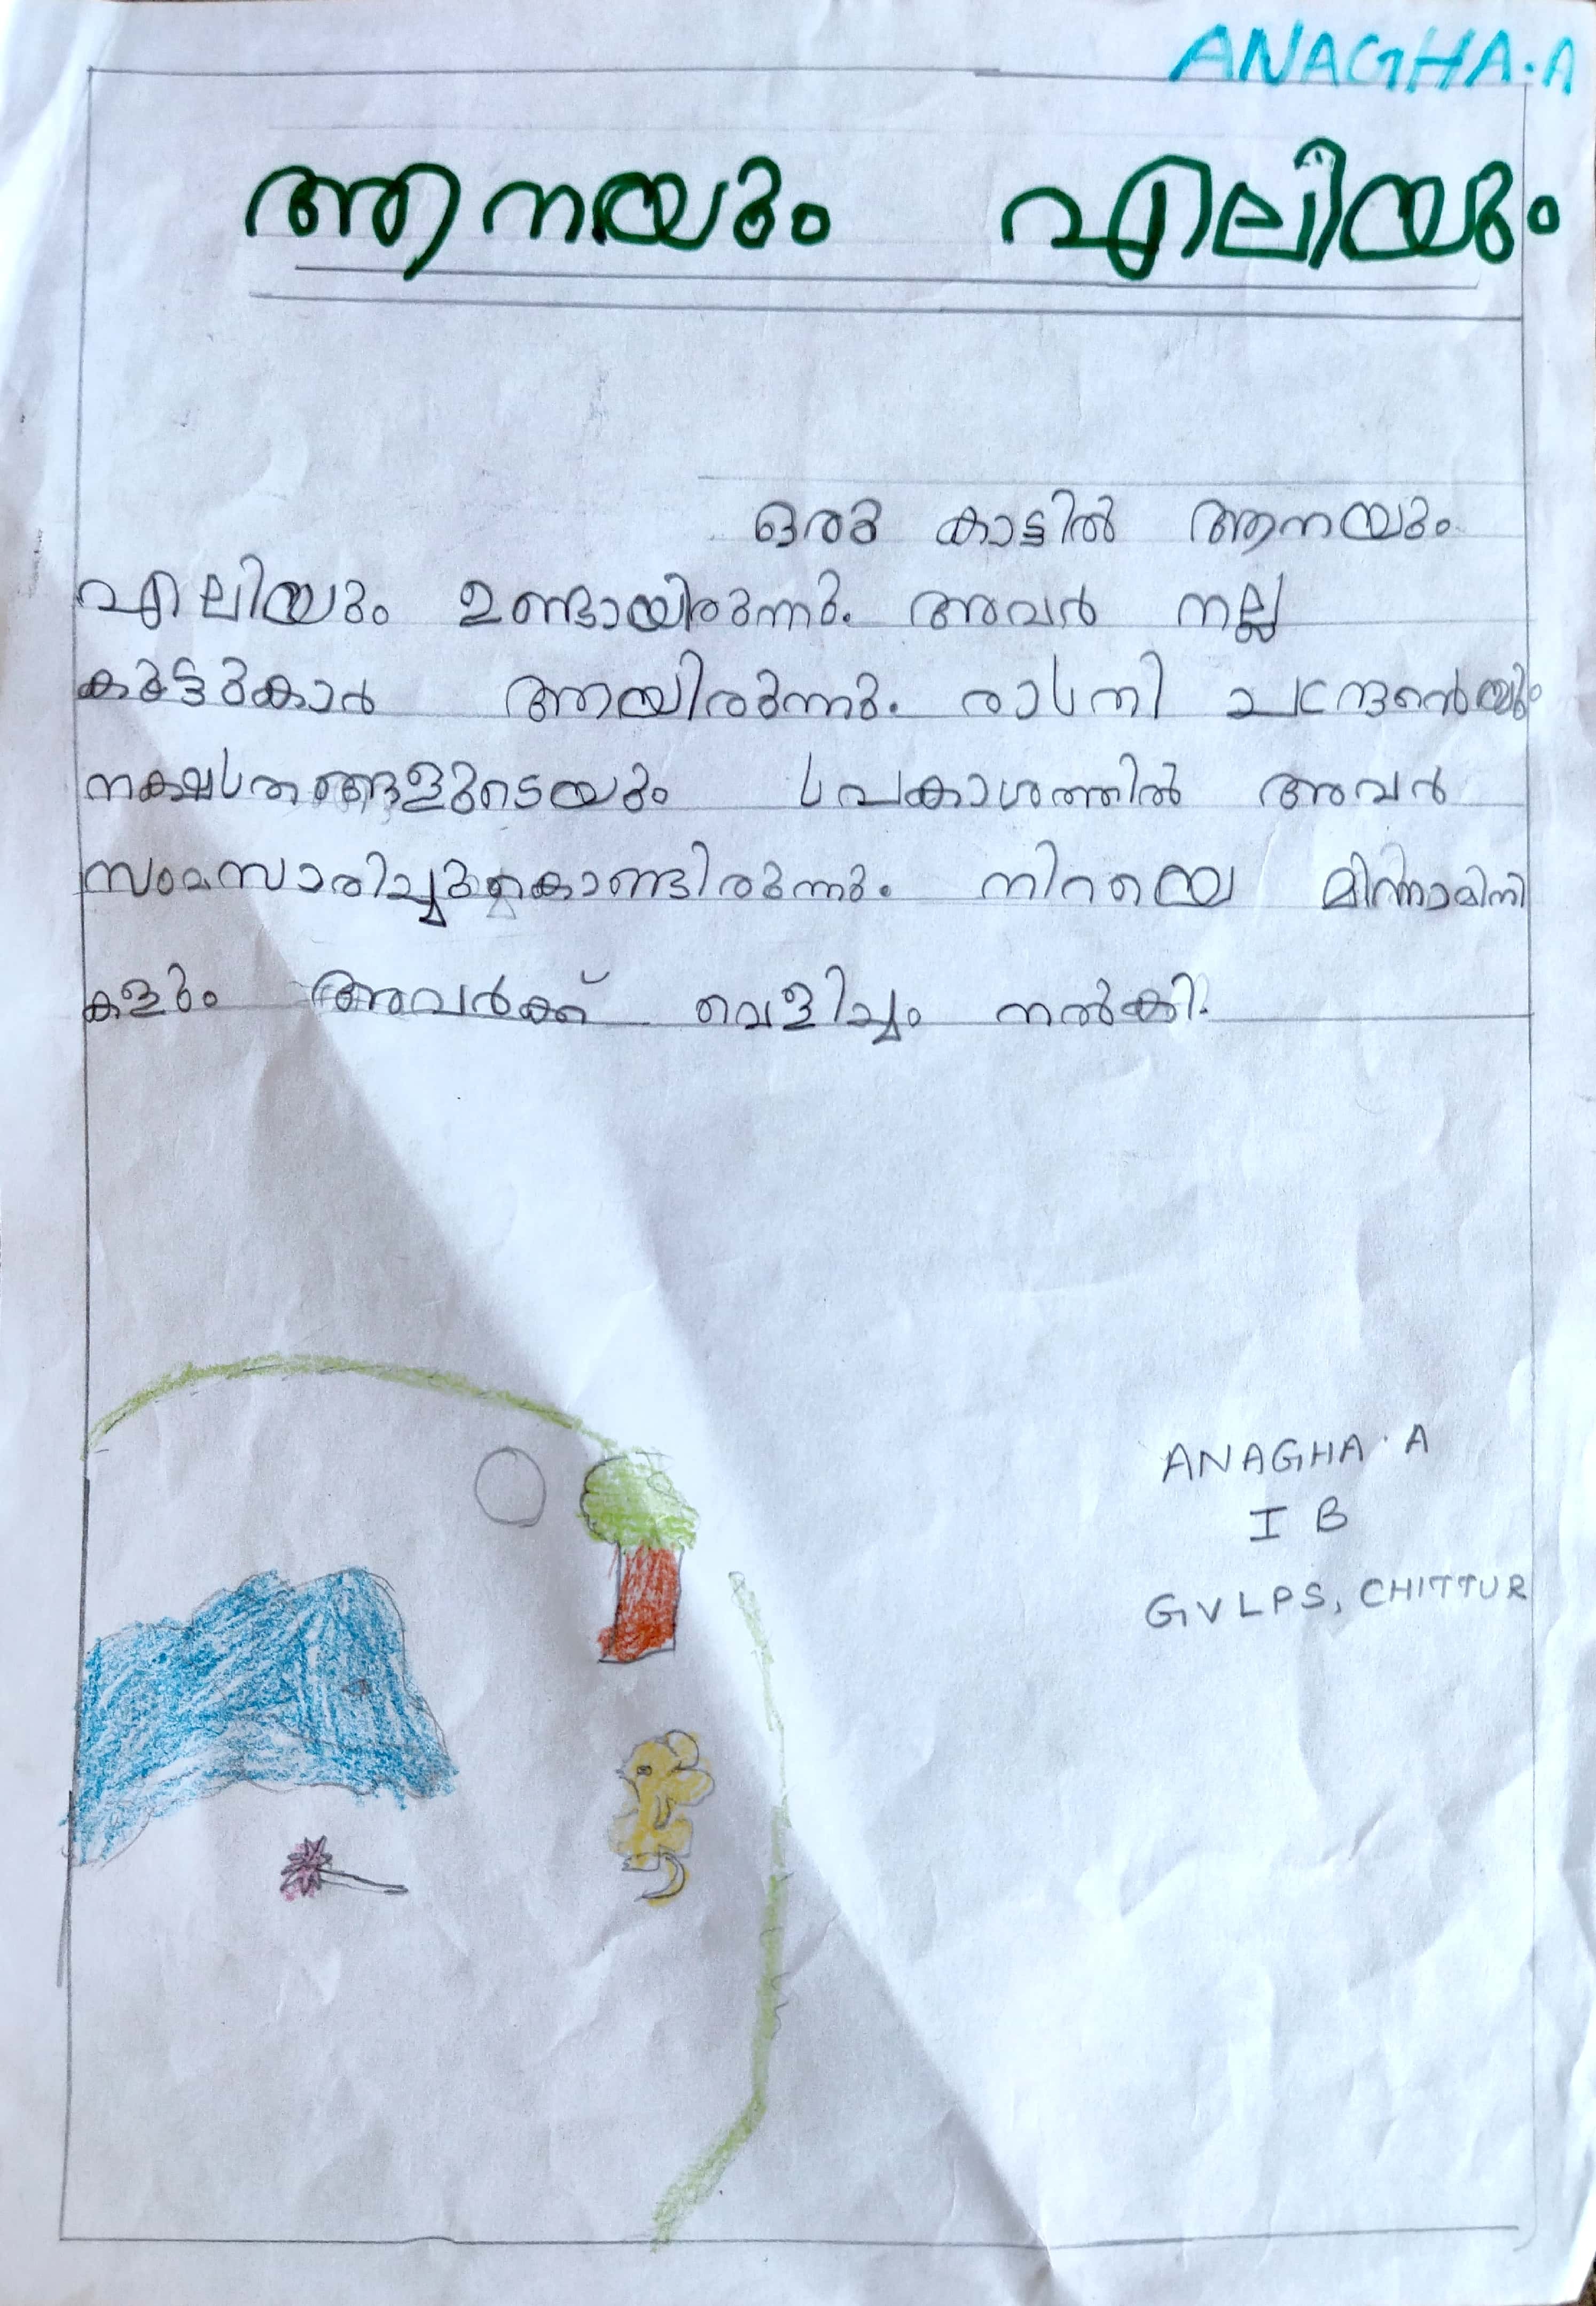 ANAGHA.A
ആനയും എലിയും
ഒരു കാട്ടിൽ ആനയും
എലിയും ഉണ്ടായിരുന്നു. അവർ നല്ല
കൂട്ടുകാർ ആയിരുന്നു. രാത്രി ചന്ദ്രന്റെയും
നക്ഷത്രങ്ങളുടെയും പ്രകാശത്തിൽ അവർ
സംസാരിച്ചുകൊണ്ടിരുന്നു. നിറയെ മിന്നാമിനി
കളും അവർക്ക് വെളിച്ചം നൽകി.
ANAGHA.A
I B
GVLPS, CHITTUR